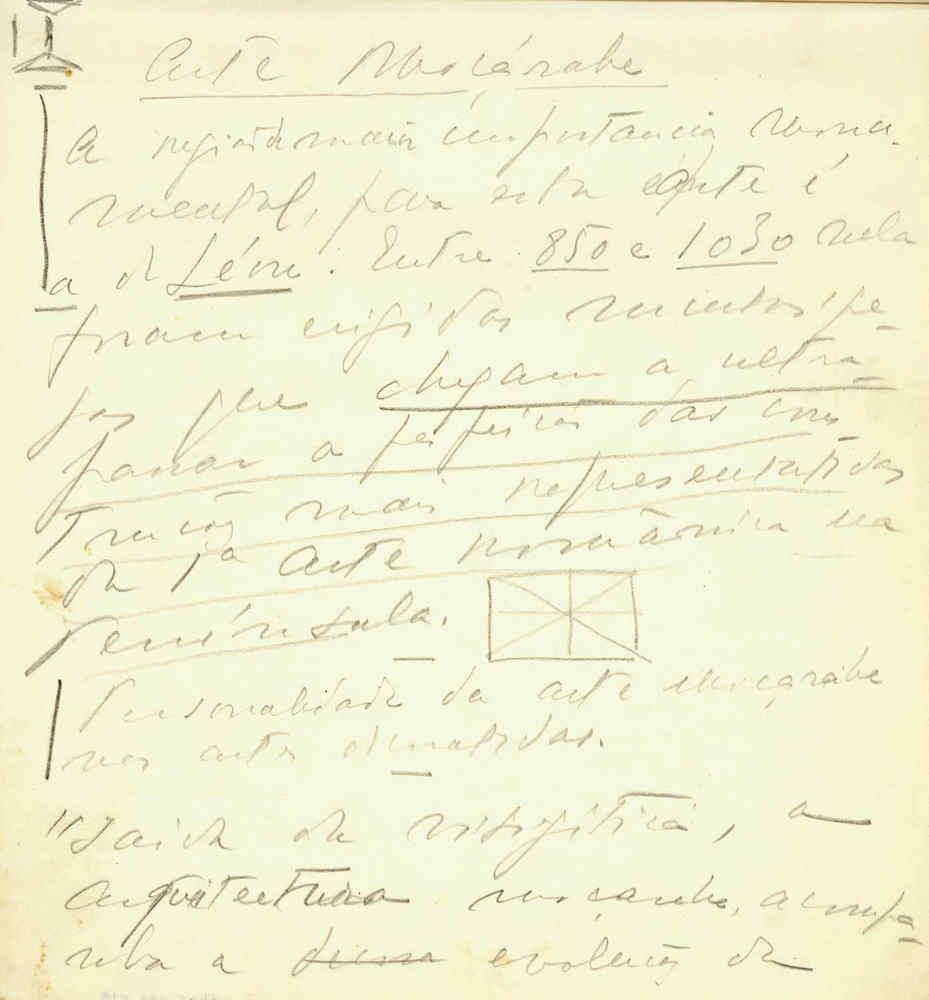 Arte Moçárabe
A região de mais importancia monu-
mental, para esta arte é
a de Léon. Entre 850 e 1030 nela
foram erigidos
que chegam a ultra-
passar a perfeição das cons
truções mais representativas
da 1ª arte românica na
Península.
Personalidade da arte moçárabe
nas artes
"Saida da visigótica, a
Arquitectura moçarabe, acompa-
nha a evolução da